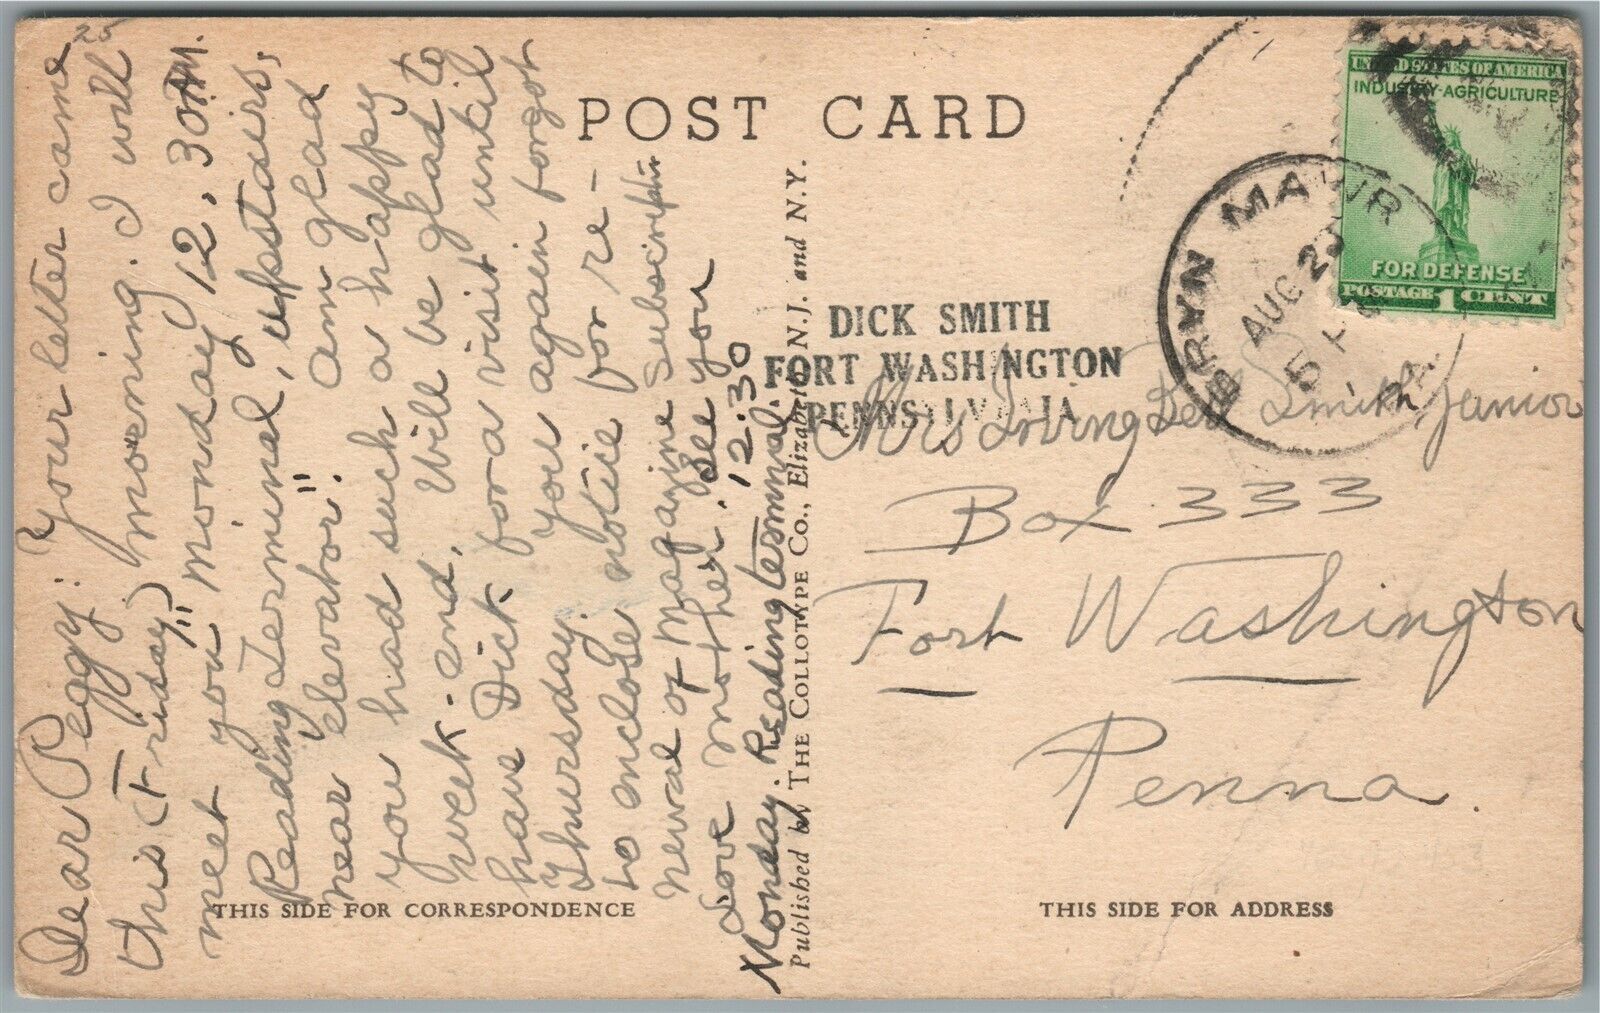 25
Dear Peggy: Your letter came
this (Friday) morning. I will
meet you "Monday 12.30 P.M.
Reading Terminal, upstairs,
near elevator". Am glad
you had such a happy
week-end. Will be glad to
have Dick for a visit until
Thursday. You again forgot
to enclose notice for re-
newal of magazine subscription
Love mother. See you
Monday. Reading terminal. 12.30
POST CARD
Published by THE COLLOTYPE CO., Elizabeth, N.J. and N.Y.
THIS SIDE FOR CORRESPONDENCE
UNITED STATES OF AMERICA
INDUSTRY-AGRICULTURE
FOR DEFENSE
POSTAGE 1 CENT
BRYN MAWR
AUG 29
5 P
PA.
DICK SMITH
FORT WASHINGTON
PENNSYLVANIA
Mrs Irving Smith Junior
Box 333
Fort Washington
Penna.
THIS SIDE FOR ADDRESS